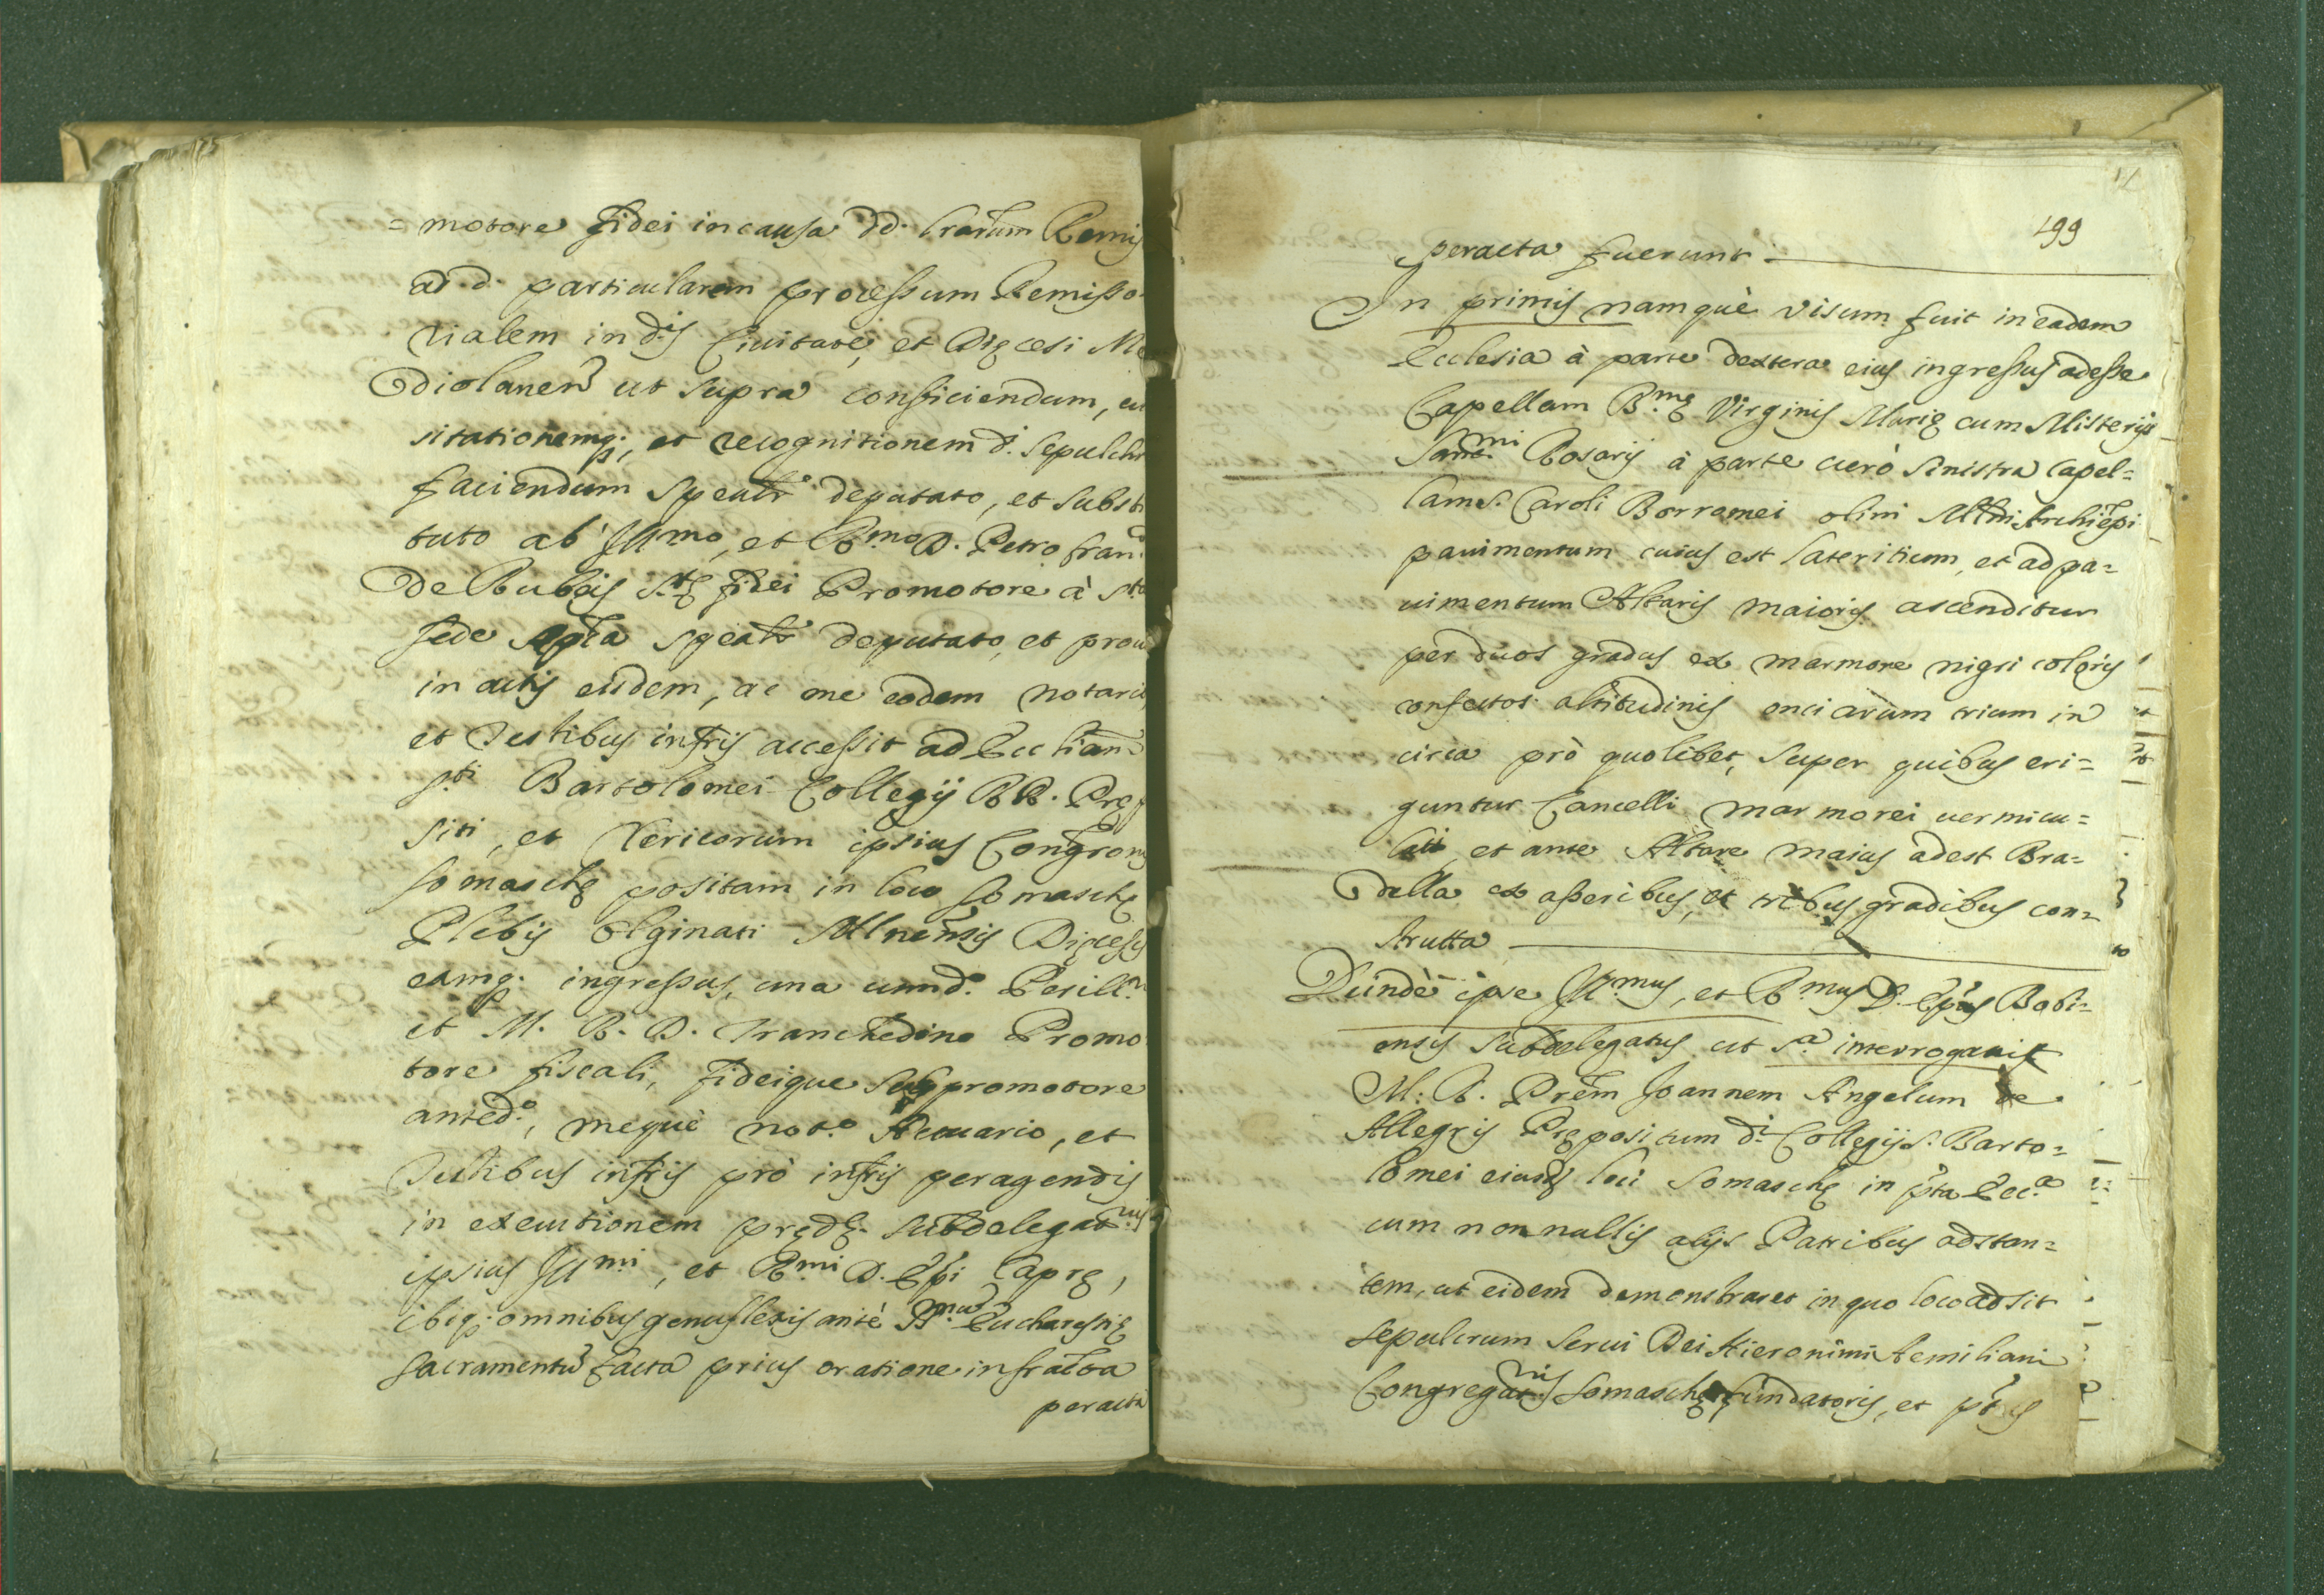 =motore fidei in causa dd. lrarum Remis
ad d. particularem processum Remisso-
rialem in dis Ciuitate, et Dięcesi Me
diolanen ut supra conficiendum, eu
sitationemq;, et recognitionem d. sepulchr
faciendum spealr deputato, et substi
tuto ab Illmo, et Rmo D. Petro Fran.
De Rubeis Stę fidei Promotore à Sta
sede Aplca spealr deputato, et prou
in actis eiusdem, ac me eodem notario
et Testibus infris accessit ad Eccliam
Sti Bartolomei Collegij RR. Pręp
siti, et Clericorum ipsius Congronis
somaschę positam in loco somaschę
Plebis Olginati Mlnensis Dięcesis
eamq; ingressus, una cum d. Perill.
et M. R. D. Tranchedino Promo
tore fiscali, fideique subpromotore
anted.o, mequè not.o Actuario, et
Testibus infris prò infris peragendis
in executionem prędę. subdelegat.nis
ipsius Illmi, et Rmi D. Epi Caprę,
ibiq; omnibus genuflexis antè SSmum Eucharestię
sacramentũ facta prius oratione infracta
peracta
199
peracta fuerunt.
In primis namquè visum fuit in eadem
Ecclesia à parte dextera eius ingressus adesse
Capellam B.mę Virginis Marię cum Misterijs
Sanct.mi Rosarij à parte uerò sinistra Capel=
lam S. Caroli Borromei olim Mlni Archiepi
pauimentum cuius est lateritium, et ad pa=
uimentum Altaris maioris ascenditur
per duos gradus ex marmore nigri coloris
confectos altitudinis onciarum trium in
circa prò quolibet, super quibus eri=
guntur Cancelli marmorei uermicu=
lati, et ante Altare maius adest Bra=
della ex asseribus, et tribus gradibus con=
strutta
Deindè ipse Ill.mus, et R.mus D. Epus Bobi=
ensis subdelegatus ut s.a interrogauit
M: R. Prem Joannem Angelum de
Allegris Prępositum di Collegij S. Barto=
lomei eiusd loci somaschę in pta Ecc.a
cum nonnullis alijs Patribus adstan=
tem, ut eidem demonstraret in quo loco adsit
sepulcrum serui Dei Hieronimi Aemiliani
Congregat.nis somaschę fundatoris, et